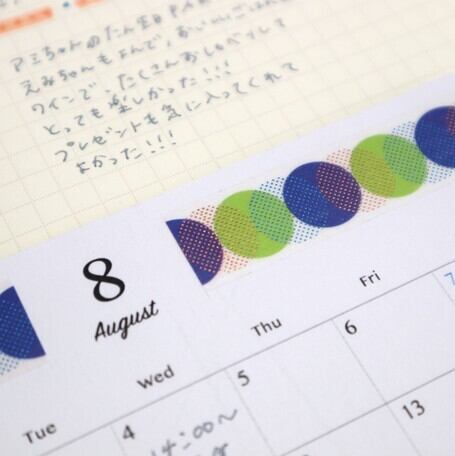 アミちゃんのたん生日PARTY
えみちゃんもよんで、おいしいごはんと
ワインで、たくさんおしゃべりして
とっても楽しかった!!!
プレゼントも気に入ってくれて
よかった!!!
8
August
Tue
Wed
Thu
Fri
4
5
6
7
14:00〜
13